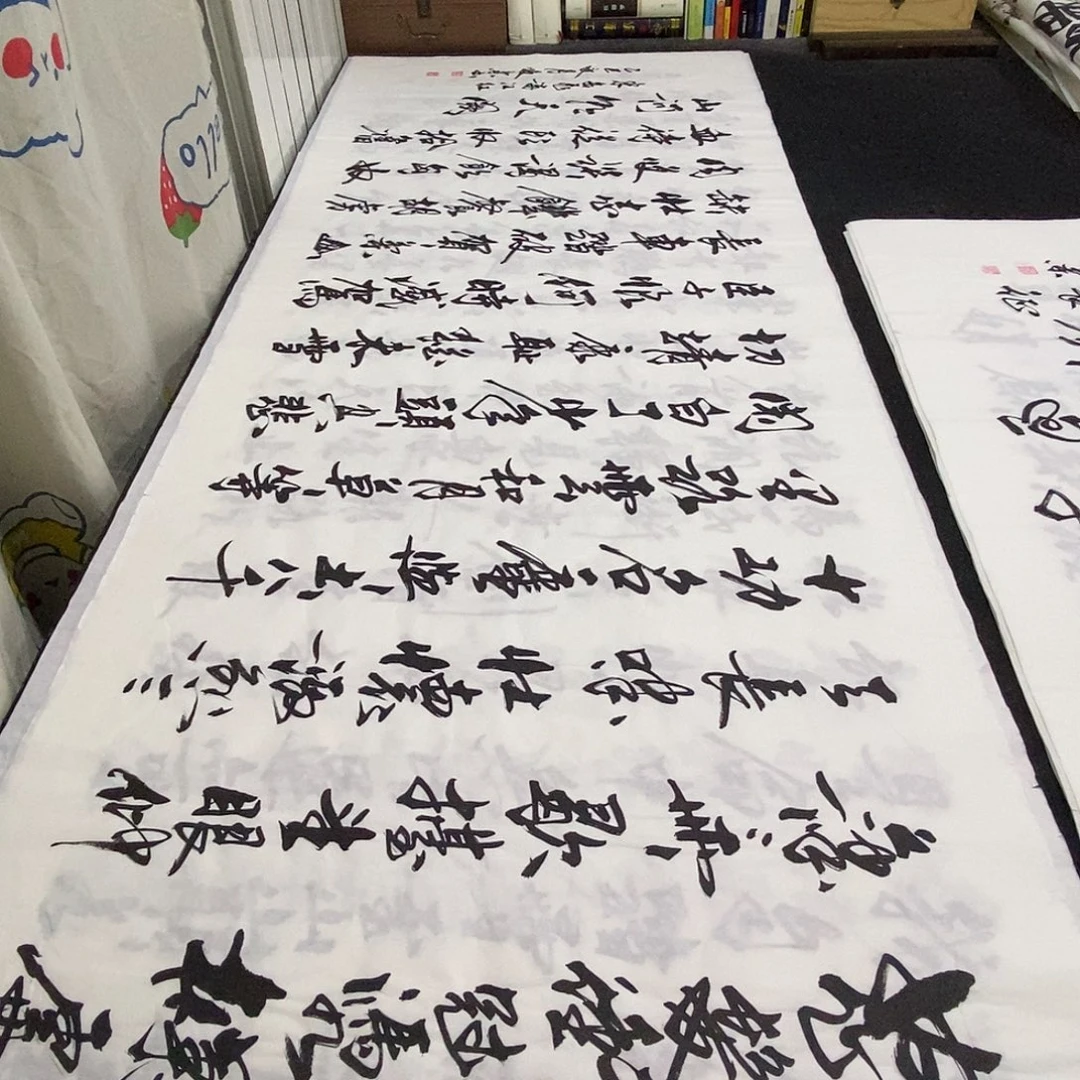 怒髮衝冠憑欄處
瀟瀟雨歇抬望眼仰
天長嘯壯懷激烈三
十功名塵與土八千
里路雲和月莫等
閑白了少年頭空悲
切靖康恥猶未雪
臣子恨何時滅駕
長車踏破賀蘭山
缺壯志飢餐胡虜
肉笑談渴飲匈奴
血待從頭收拾舊
山河朝天闕